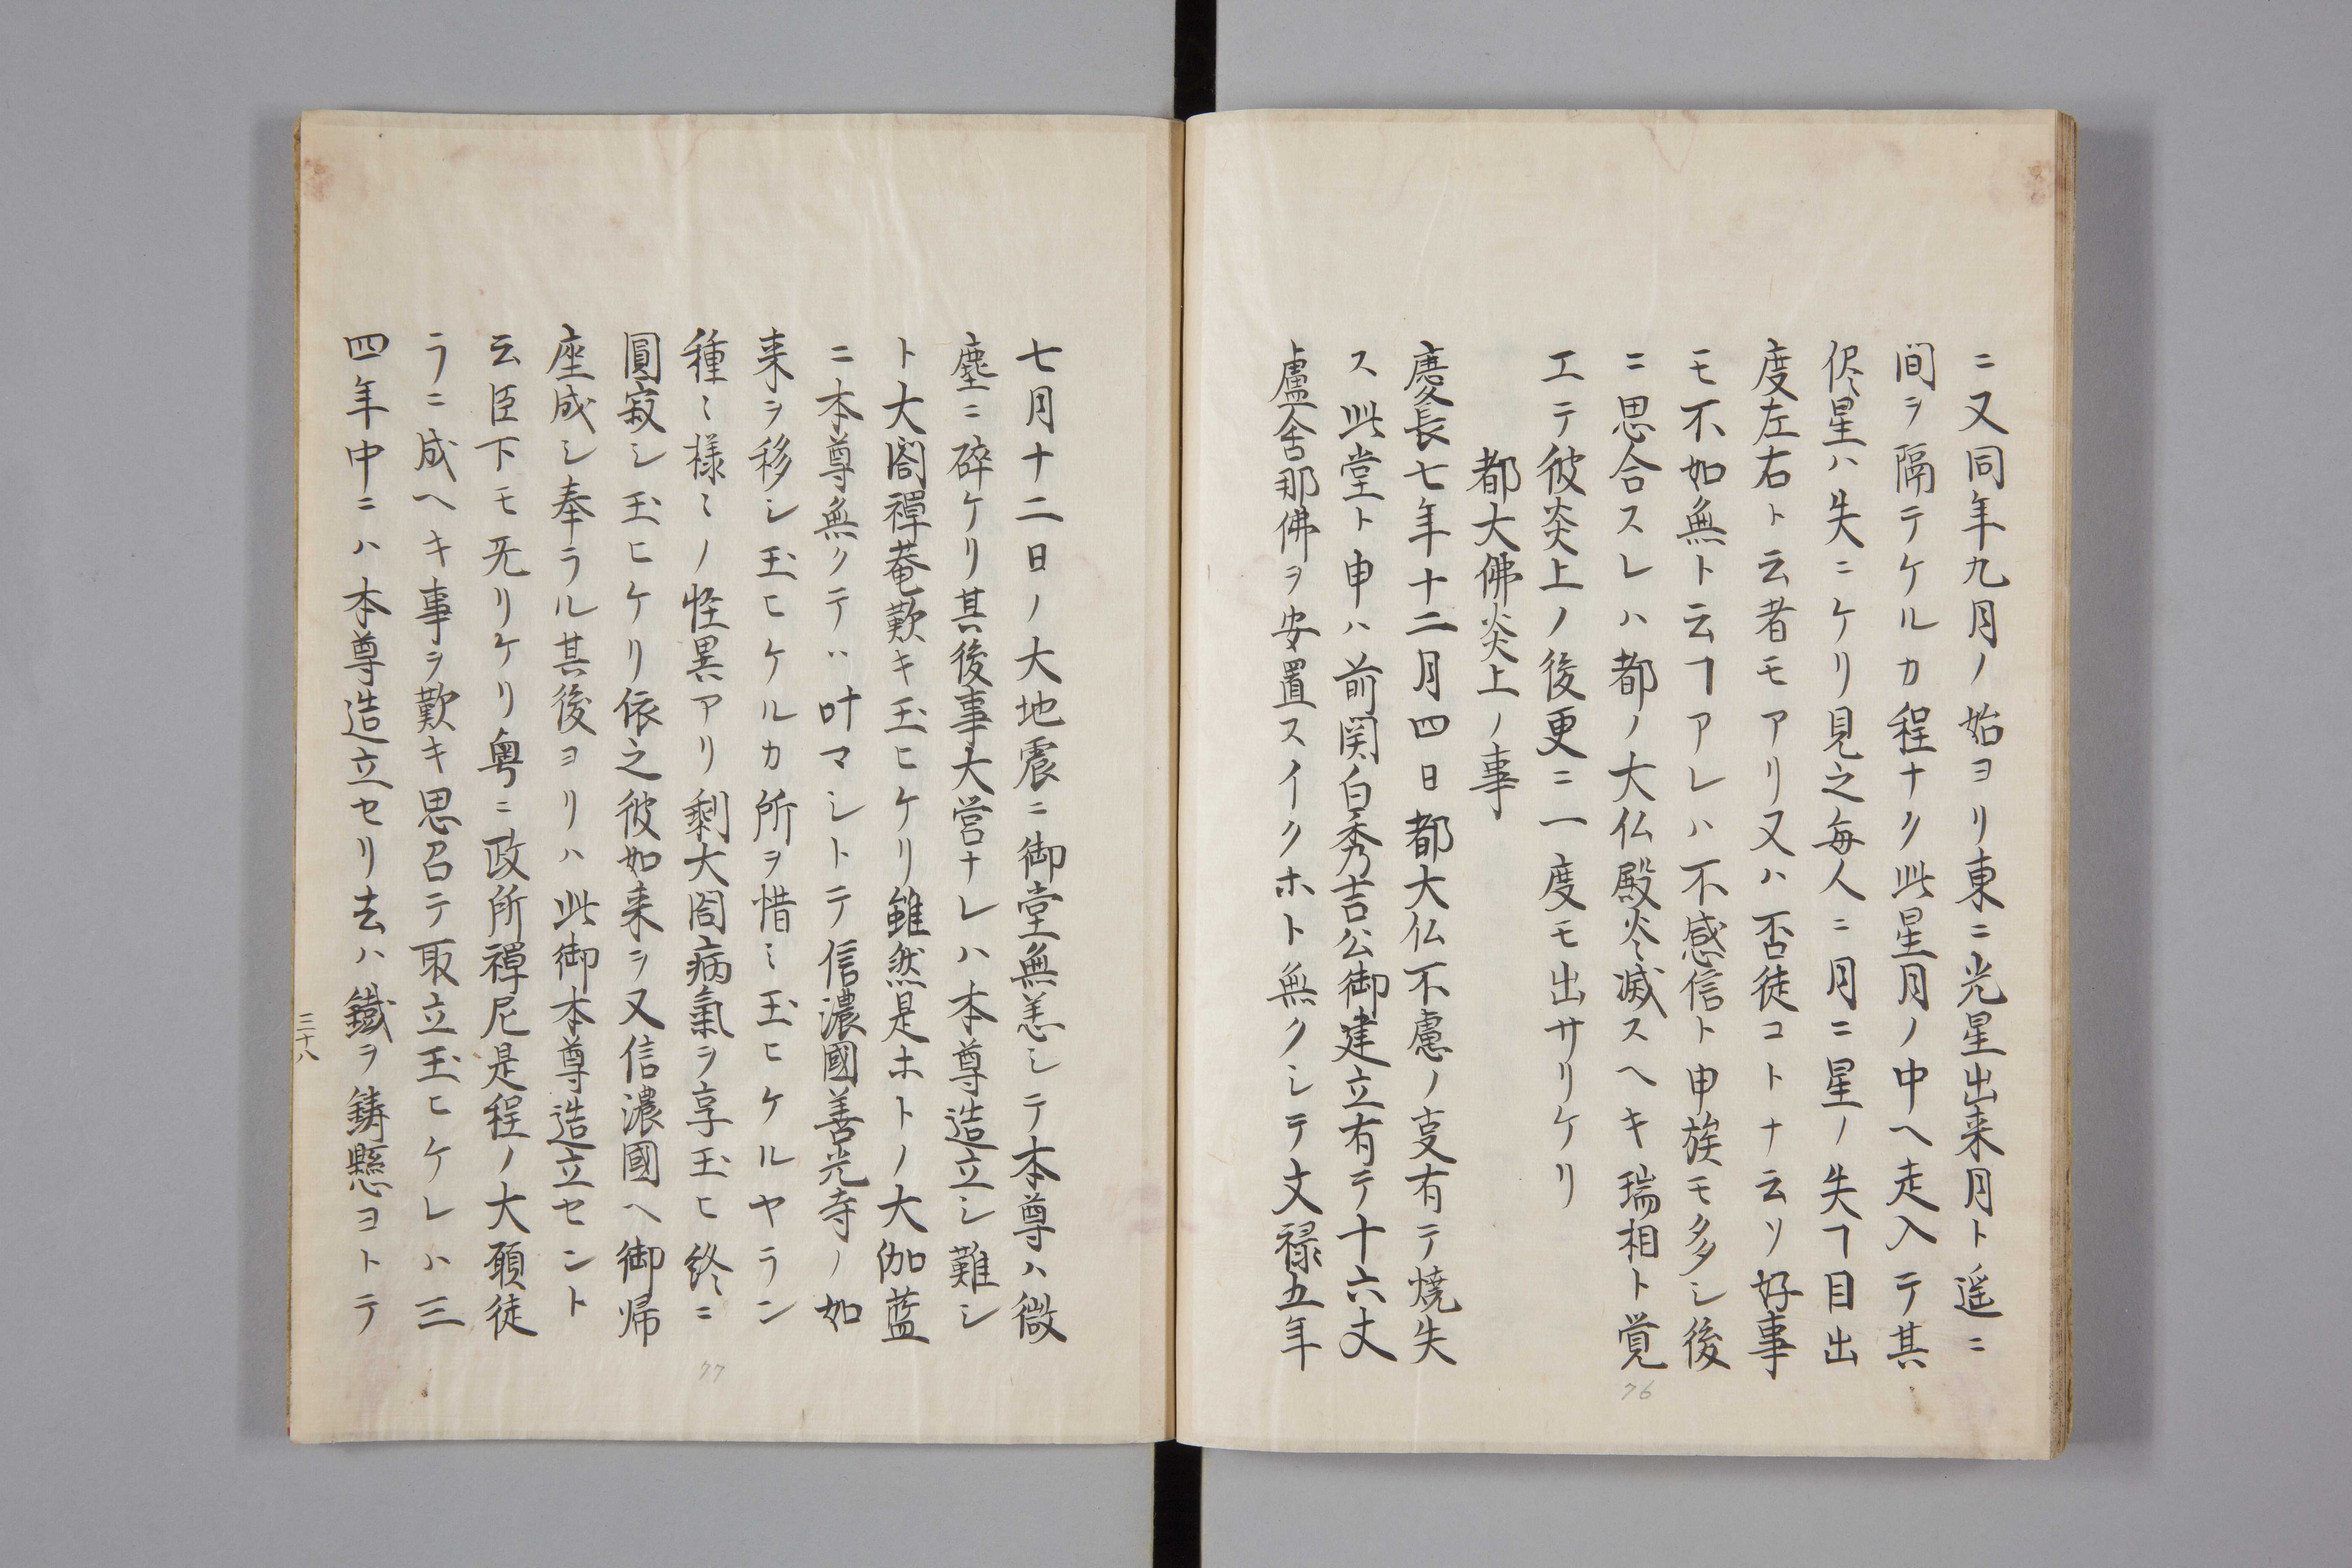 ニ又同年九月ノ始ヨリ東ニ光星出来月ト遥ニ
間ヲ隔テケルカ程ナク此星月ノ中ヘ走入テ其
侭星ハ失ニケリ見之毎人ニ月ニ星ノ失ヿ目出
度左右ト云者モアリ又ハ否徒コトナ云ソ好事
モ不如無ト云ヿアレハ不感信ト申族モ多シ後
ニ思合スレハ都ノ大仏殿炎滅スヘキ瑞相ト覚
エテ彼炎上ノ後更ニ一度モ出サリケリ
都大佛炎上ノ事
慶長七年十二月四日都大仏不慮ノ変有テ焼失
ス此堂ト申ハ前関白秀吉公御建立有テ十六丈
盧舎那佛ヲ安置スイクホト無クシテ文禄五年
76
七月十二日ノ大地震ニ御堂無恙シテ本尊ハ微
塵ニ碎ケリ其後事大営ナレハ本尊造立シ難シ
ト大閤禪菴歎キ玉ヒケリ雖然是ホトノ大伽藍
ニ本尊無クテハ叶マシトテ信濃國善光寺ノ如
来ヲ移シ玉ヒケルカ所ヲ惜ミ玉ヒケルヤラン
種ミ様ミノ怪異アリ剰大閤病氣ヲ享玉ヒ終ニ
圓寂シ玉ヒケリ依之彼如来ヲ又信濃國ヘ御帰
座成シ奉ラル其後ヨリハ此御本尊造立セント
云臣下モ旡リケリ粤ニ政所禪尼是程ノ大願徒
ラニ成ヘキ事ヲ歎キ思召テ取立玉ヒケレハ三
四年中ニハ本尊造立セリ去ハ鐵ヲ鋳懸ヨトテ
三十八
77